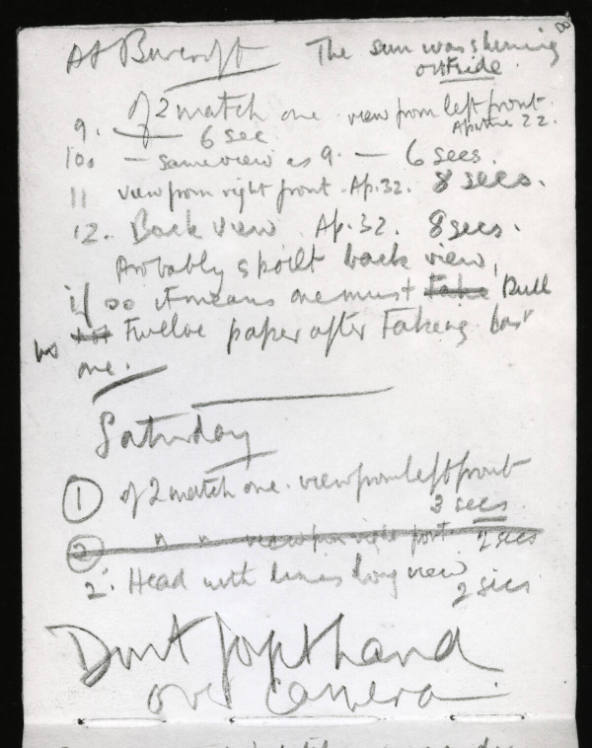 At Burcroft The sun was shining
outside.
of 2 match one view from left front.
9. — 6 sec Aputure 22.
10. — same view as 9. — 6 secs.
11 view from right front. Ap. 32. 8 secs.
12. Back view. Ap. 32. 8 secs.
Probably spoilt back view,
if so it means one must Take Pull
twelve paper after taking last
one.
Saturday
1 of 2 match one. view from left front
3 secs
2 " " view from right front. 2 secs
2. Head with long view
2 secs
Dont hand
over Camera.